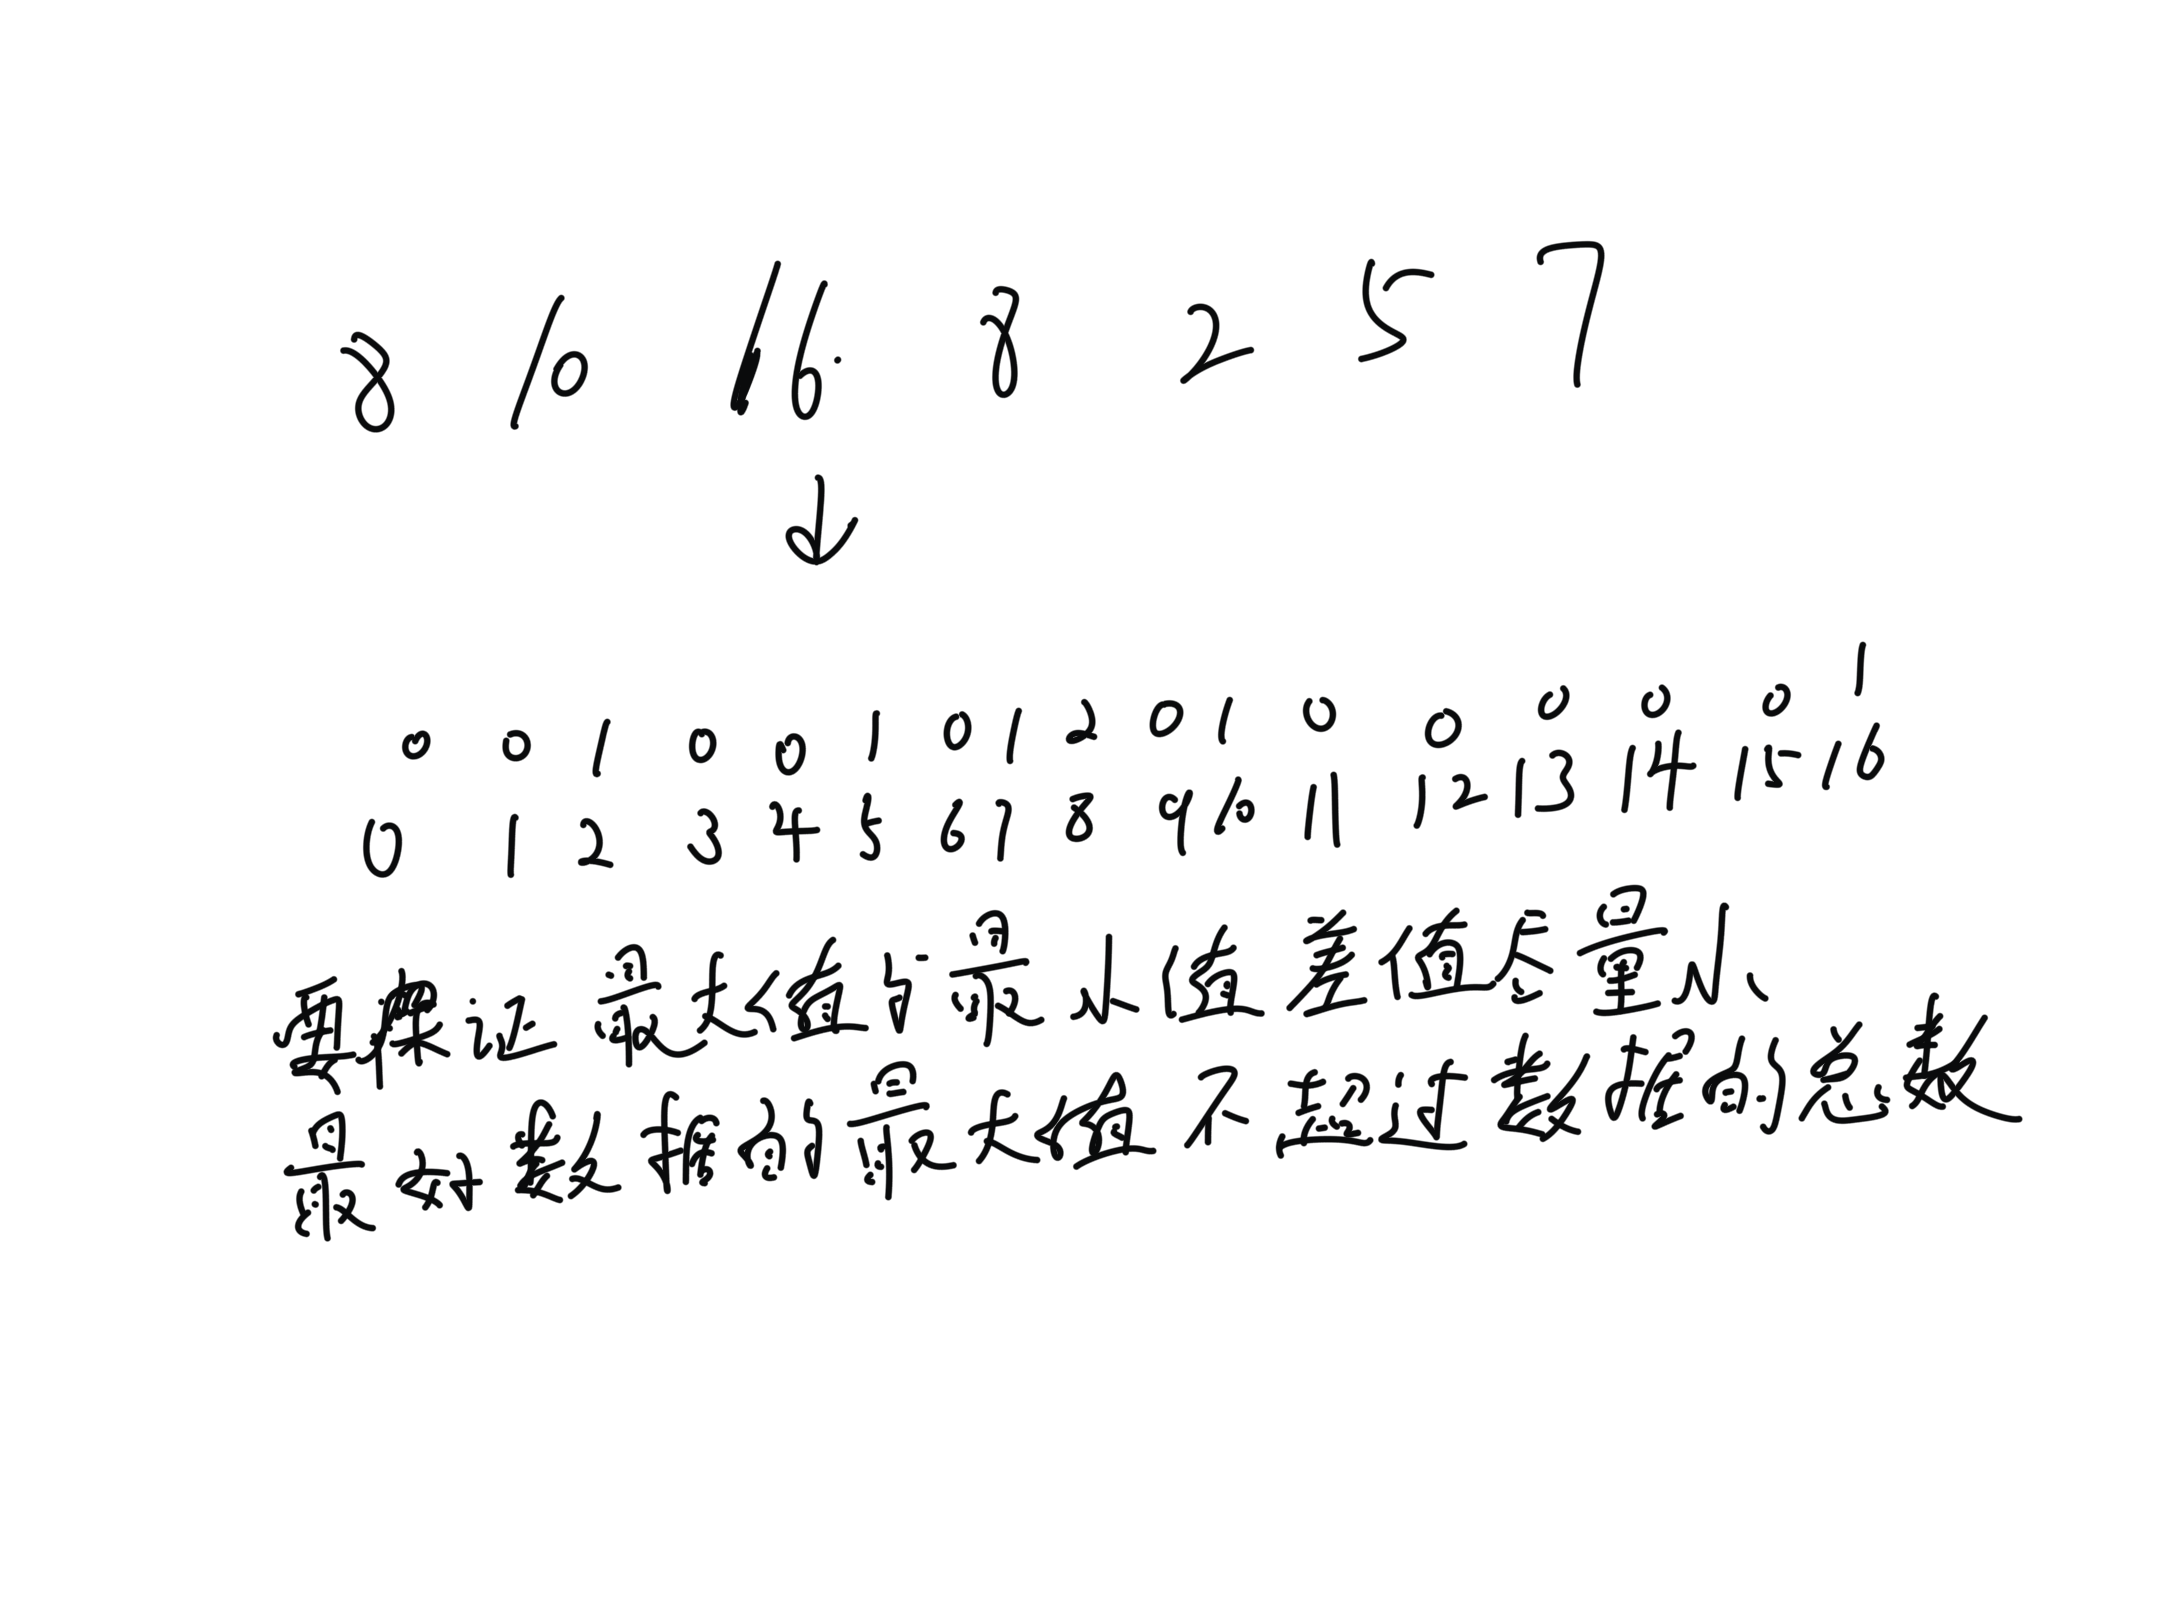 8 10 16 8 2 5 7
0 0 1 0 0 1 0 1 2 0 1 0 0 0 0 0 1
0 1 2 3 4 5 6 7 8 9 10 11 12 13 14 15 16
要保证最大值与最小值差值尽量小、
最好数据的最大值不超过数据的总数